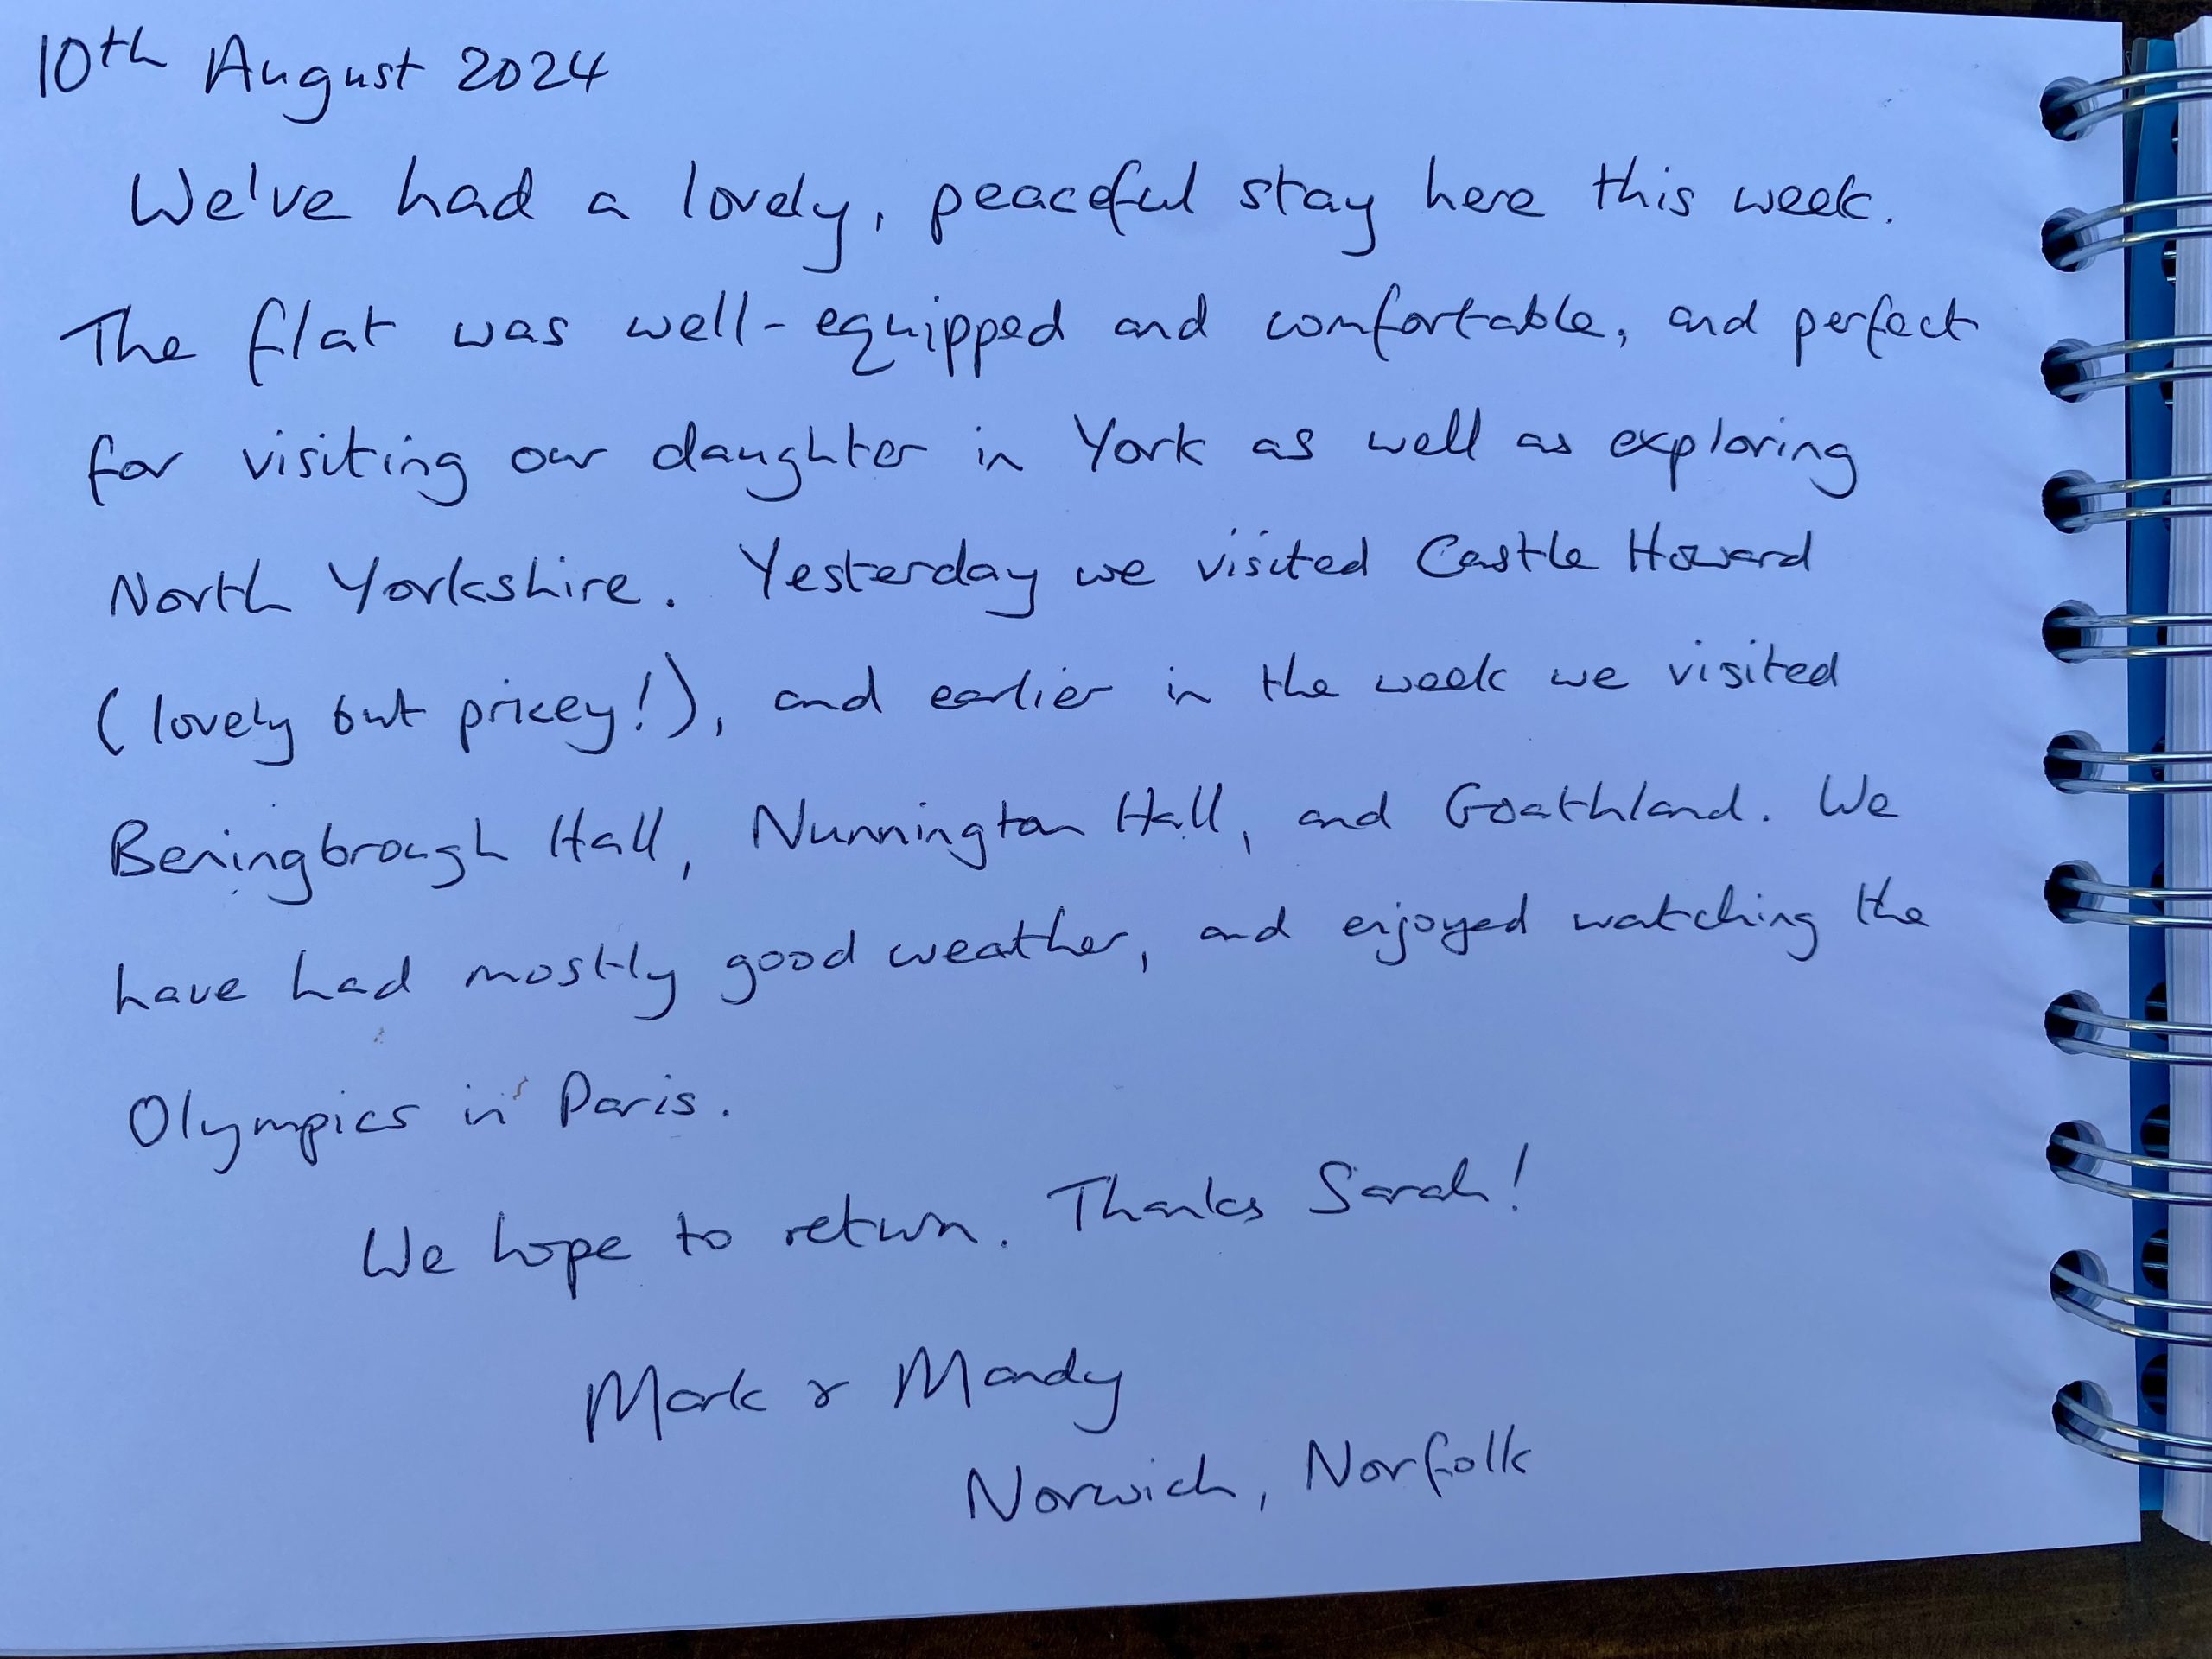 10th August 2024
We've had a lovely, peaceful stay here this week.
The flat was well-equipped and comfortable, and perfect
for visiting our daughter in York as well as exploring
North Yorkshire. Yesterday we visited Castle Howard
(lovely but pricey!), and earlier in the week we visited
Beningbrough Hall, Nunnington Hall, and Goathland. We
have had mostly good weather, and enjoyed watching the
Olympics in Paris.
We hope to return. Thanks Sarah!
Mark & Mandy
Norwich, Norfolk